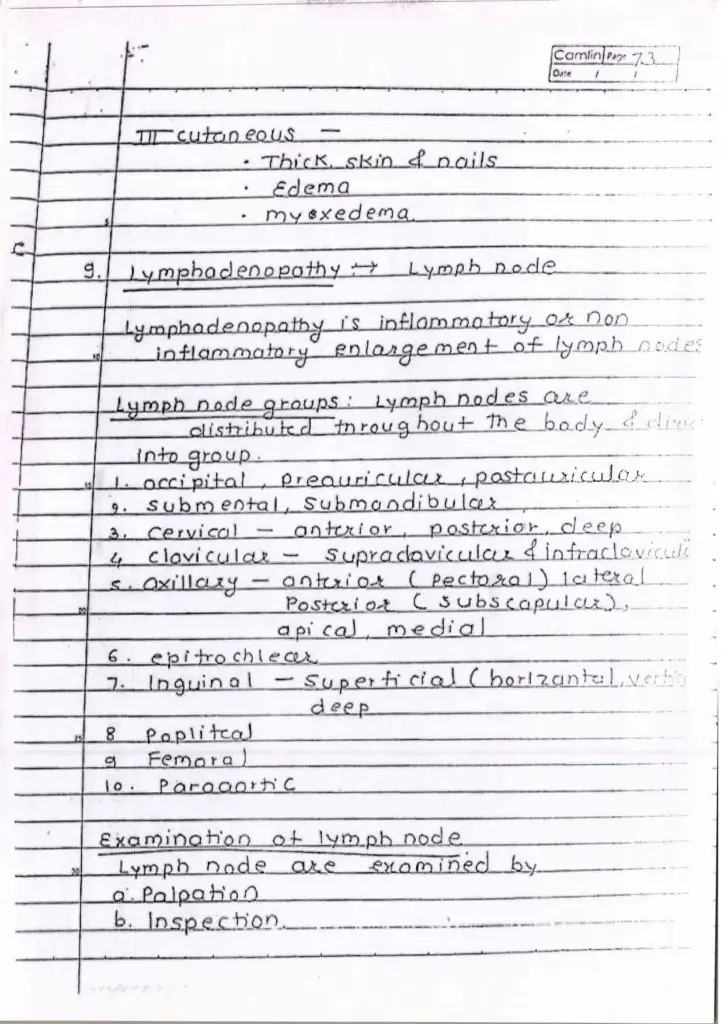 Camlin Page 73
Date / /
III cutaneous —
• Thick skin & nails
• Edema
• myoxedema
9. Lymphadenopathy :→ Lymph node
Lymphadenopathy is inflammatory or non
inflammatory enlargement of lymph nodes
Lymph node groups : Lymph nodes are
distributed throughout the body &
into group.
1. occipital, preauricular, postauricular
2. submental, submandibular,
3. cervical — anterior, posterior, deep
4. clavicular — supraclavicular &
5. axillary — anterior (pectoral) lateral
Posterior (subscapular),
apical, medial
6. epitrochlear
7. Inguinal — superficial (horizantal,
deep
8 Popliteal
9 Femoral
10. Paraaortic
Examination of lymph node
Lymph node are examined by
a. Palpation
b. Inspection.
5
10
15
20
25
30